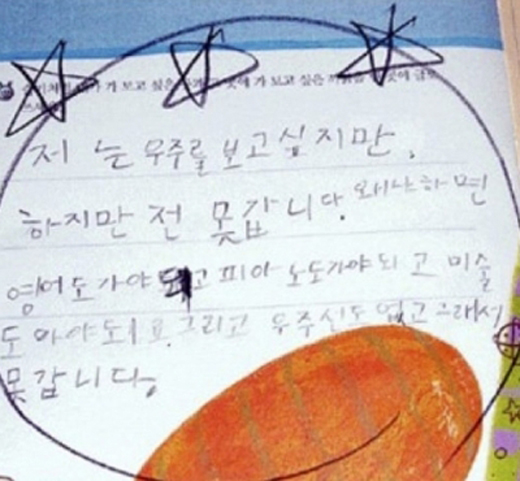 가 보고 싶은 곳에 가 보고 싶은
저 는 우주를 보고싶지만,
하지만 전 못갑니다. 왜냐하면
영어도가야되고 피아노도가야되고 미술
도 아야도i고 그리고 우주신도 없고 그래서
못갑니다.